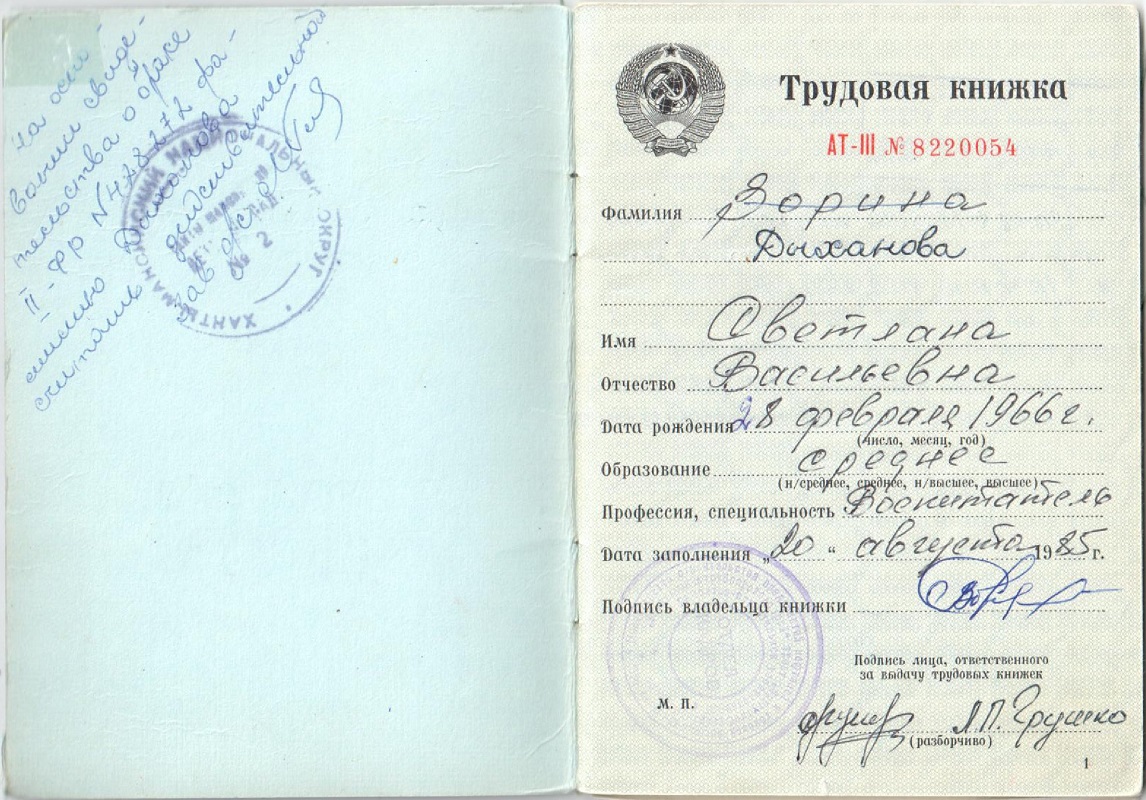 на осно-
вании свиде-
тельства о браке
II-ФР N 428272 фа-
милию Дыханова
считать действительной
Зав д/с
ХАНТЫ-МАНСИЙСКИЙ НАЦИОНАЛЬНЫЙ ОКРУГ
2
Трудовая книжка
АТ-III № 8220054
Фамилия Зорина
Дыханова
Имя Светлана
Отчество Васильевна
Дата рождения 28 февраля 1966 г.
(число, месяц, год)
Образование среднее
(н/среднее, среднее, н/высшее, высшее)
Профессия, специальность Воспитатель
Дата заполнения „20“ августа 1985 г.
Подпись владельца книжки
Подпись лица, ответственного
за выдачу трудовых книжек
М. П.
Л.П. Грушко
(разборчиво)
1